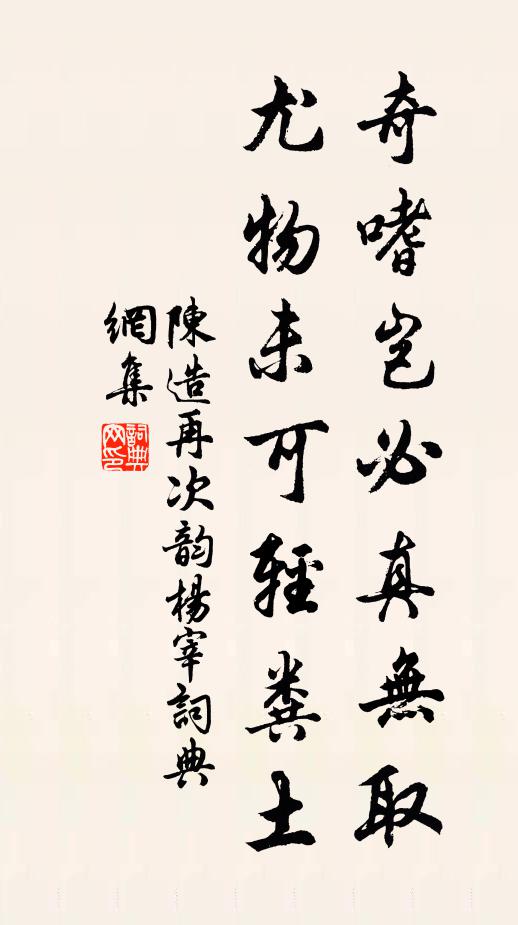 奇嗜岂必真無取
尤物未可輕糞土
陳造再次韵楊宰詞典
網集
詞典網印